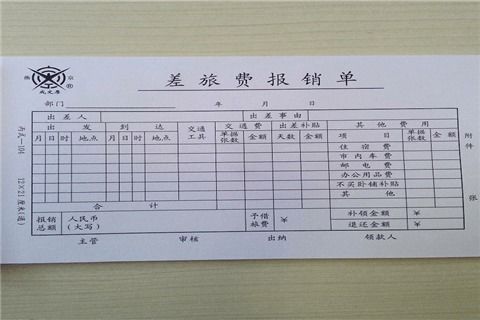 燕 京
成文厚
差旅费报销单
部门 年 月 日
出差人 出差事由
出发 到达 交通工具 交通费 出差补贴 其他费用
月 日 时 地点 月 日 时 地点 单据张数 金额 天数 金额 项目 单据张数 金额
住宿费
市内车费
邮电费
办公用品费
不买卧铺补贴
其他
合计
报销总额 人民币(大写) 预借旅费 ¥ 补领金额 ¥
退还金额 ¥
主管 审核 出纳 领款人
附件 张
丙式—104 12×21厘米(通)